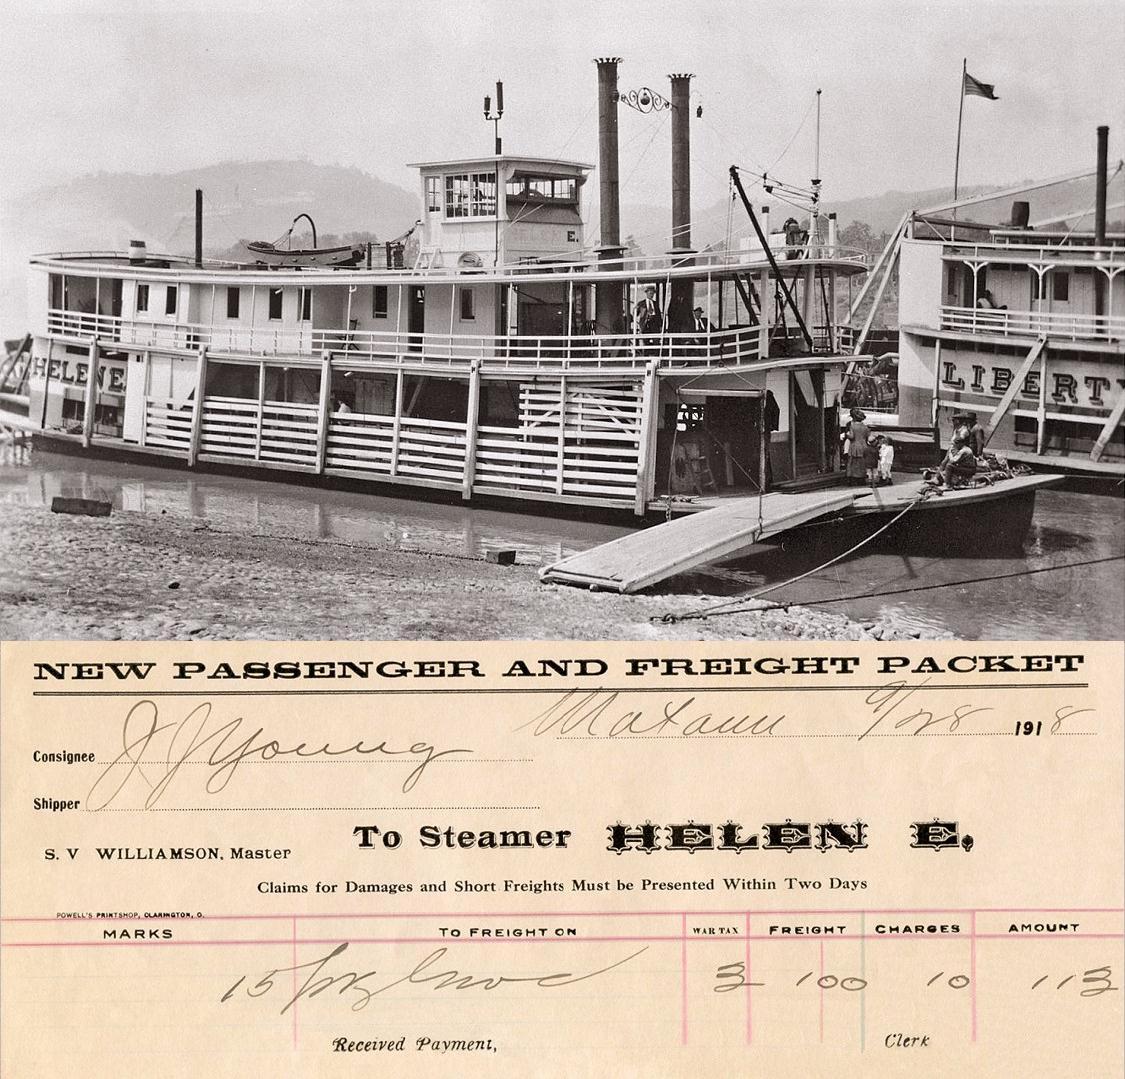 E.
HELEN E.
LIBERTY
NEW PASSENGER AND FREIGHT PACKET
9/28 1918
Consignee J J Young
Shipper
To Steamer HELEN E.
S. V WILLIAMSON, Master
Claims for Damages and Short Freights Must be Presented Within Two Days
POWELL'S PRINTSHOP, CLARINGTON, O.
MARKS TO FREIGHT ON WAR TAX FREIGHT CHARGES AMOUNT
15 3 100 10 113
Received Payment, Clerk